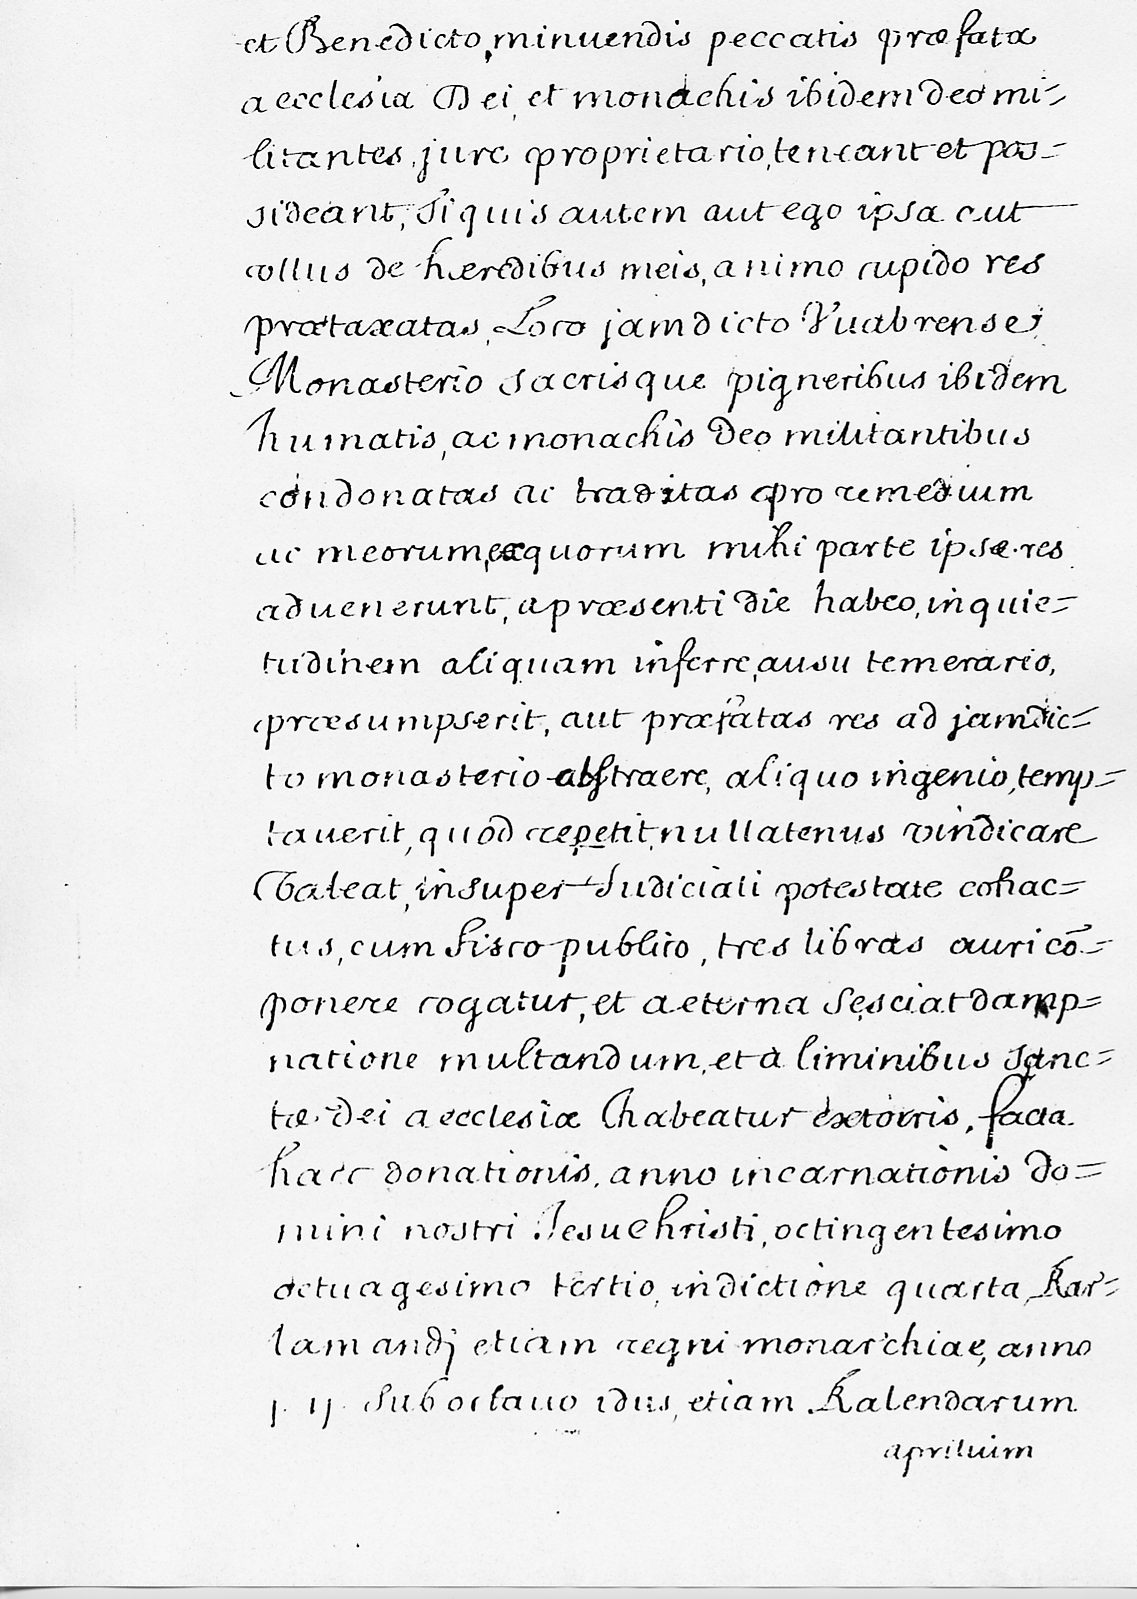 et Benedicto, minuendis peccatis præfata
aecclesia Dei, et monachis ibidem deo mi=
litantes, jure proprietario, teneant et pos=
sideant, Si quis autem aut ego ipsa aut
ullus de hæredibus meis, animo cupido res
prætaxatas, Loco jamdicto Vuabrense,
Monasterio sacrisque pigneribus ibidem
humatis, ac monachis Deo militantibus
condonatas ac traditas pro remedium
ac meorum, ex quorum mihi parte ipsæ res
aduenerunt, a præsenti die habeo, inquie=
tudinem aliquam inferre, ausu temerario,
præsumpserit, aut præfatas res ad jamdic=
to monasterio abstraere, aliquo ingenio, temp=
tauerit, quod repetit, nullatenus vindicare
Valeat, insuper Judiciali potestate cohac=
tus, cum fisco publico, tres libras auri cō=
ponere cogatur, et aeterna se sciat damp=
natione multandum, et a liminibus sanc=
tæ Dei aecclesiæ habeatur extorris, facta
haec donationis, anno incarnationis do=
mini nostri Jesu Christi, octingentesimo
octuagesimo tertio, indictione quarta, Kar=
lamandj etiam regni monarchiae, anno
sub octauo idus, etiam Kalendarum
apriluim